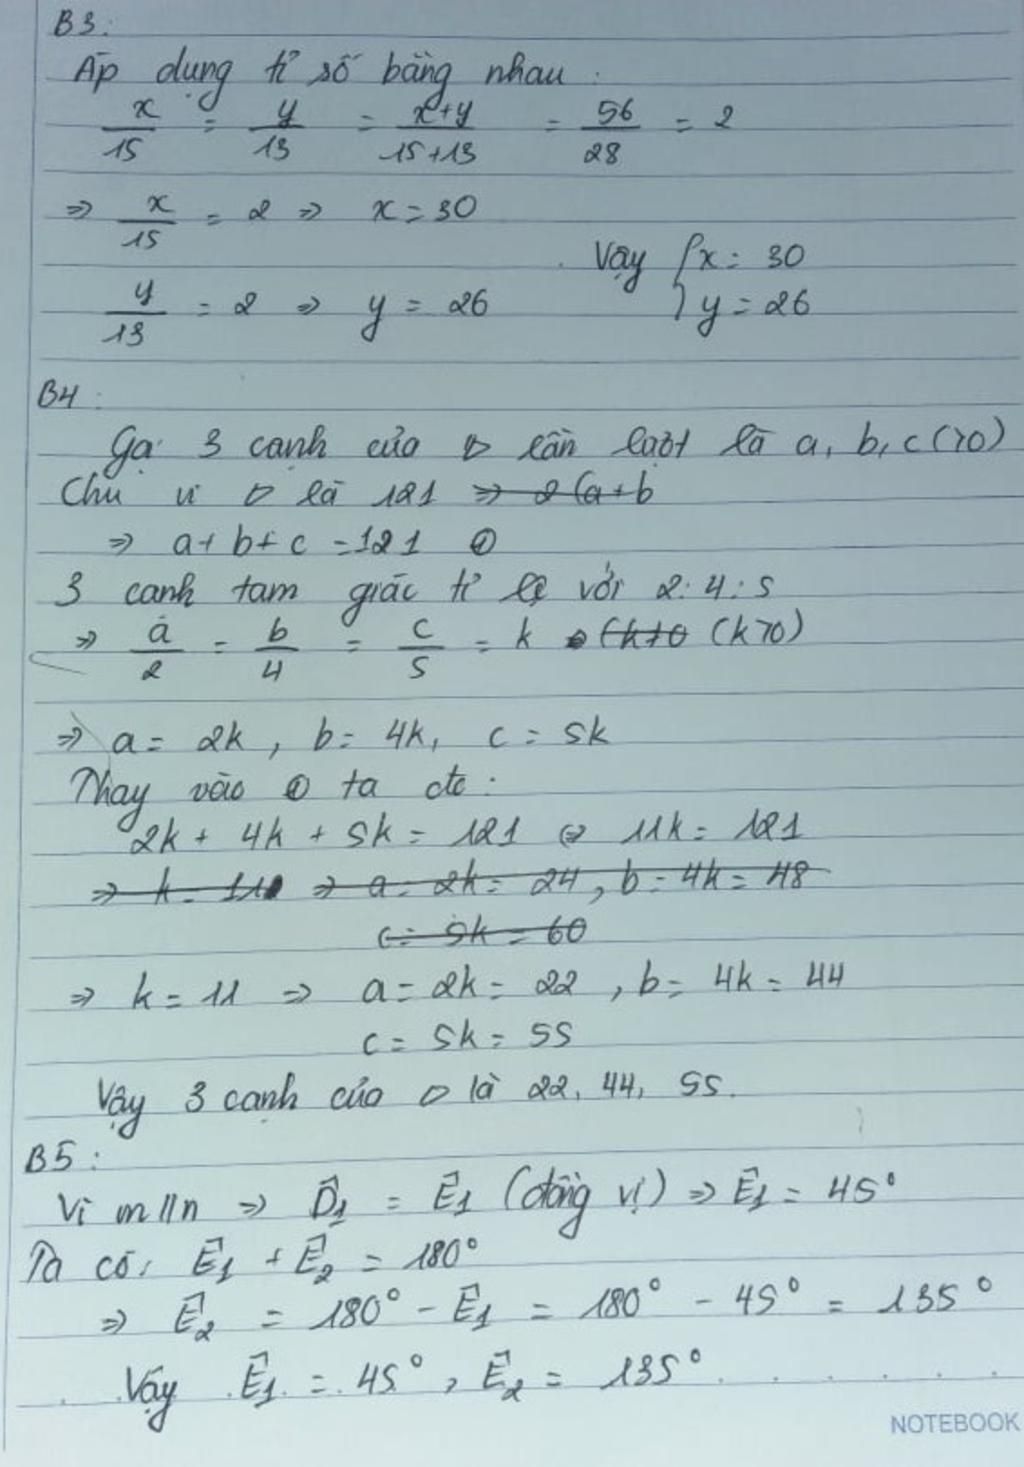 B3:
Áp dụng tỉ số bằng nhau :
x/15 = y/13 = x+y/15+13 = 56/28 = 2
=> x/15 = 2 => x = 30
y/13 = 2 => y = 26
Vậy { x = 30
y = 26
B4 :
Gọi 3 cạnh của ▷ lần lượt là a, b, c (>0)
Chu vi ▷ là 121 => 2(a+b
=> a+b+c = 121 ①
3 cạnh tam giác tỉ lệ với 2:4:5
=> a/2 = b/4 = c/5 = k (k≠0 (k>0)
=> a = 2k, b = 4k, c = 5k
Thay vào ① ta đc :
2k + 4k + 5k = 121 <=> 11k = 121
=> k = 11 => a = 2k = 24, b = 4k = 48
c = 5k = 60
=> k = 11 => a = 2k = 22, b = 4k = 44
c = 5k = 55
Vậy 3 cạnh của ▷ là 22, 44, 55.
B5 :
Vì m//n => D̂1 = Ê1 (đồng vị) => Ê1 = 45°
Ta có: Ê1 + Ê2 = 180°
=> Ê2 = 180° - Ê1 = 180° - 45° = 135°
Vậy Ê1 = 45°, Ê2 = 135°
NOTEBOOK